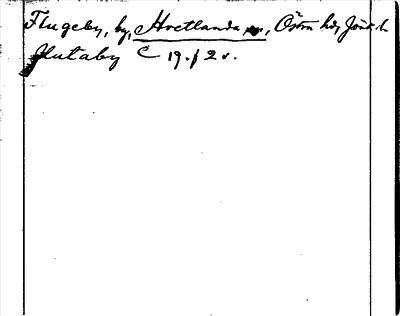 Flugeby, by, Hvetlanda, Östra hd, Jönk. l.
Flutaby C 19. f 2 v.